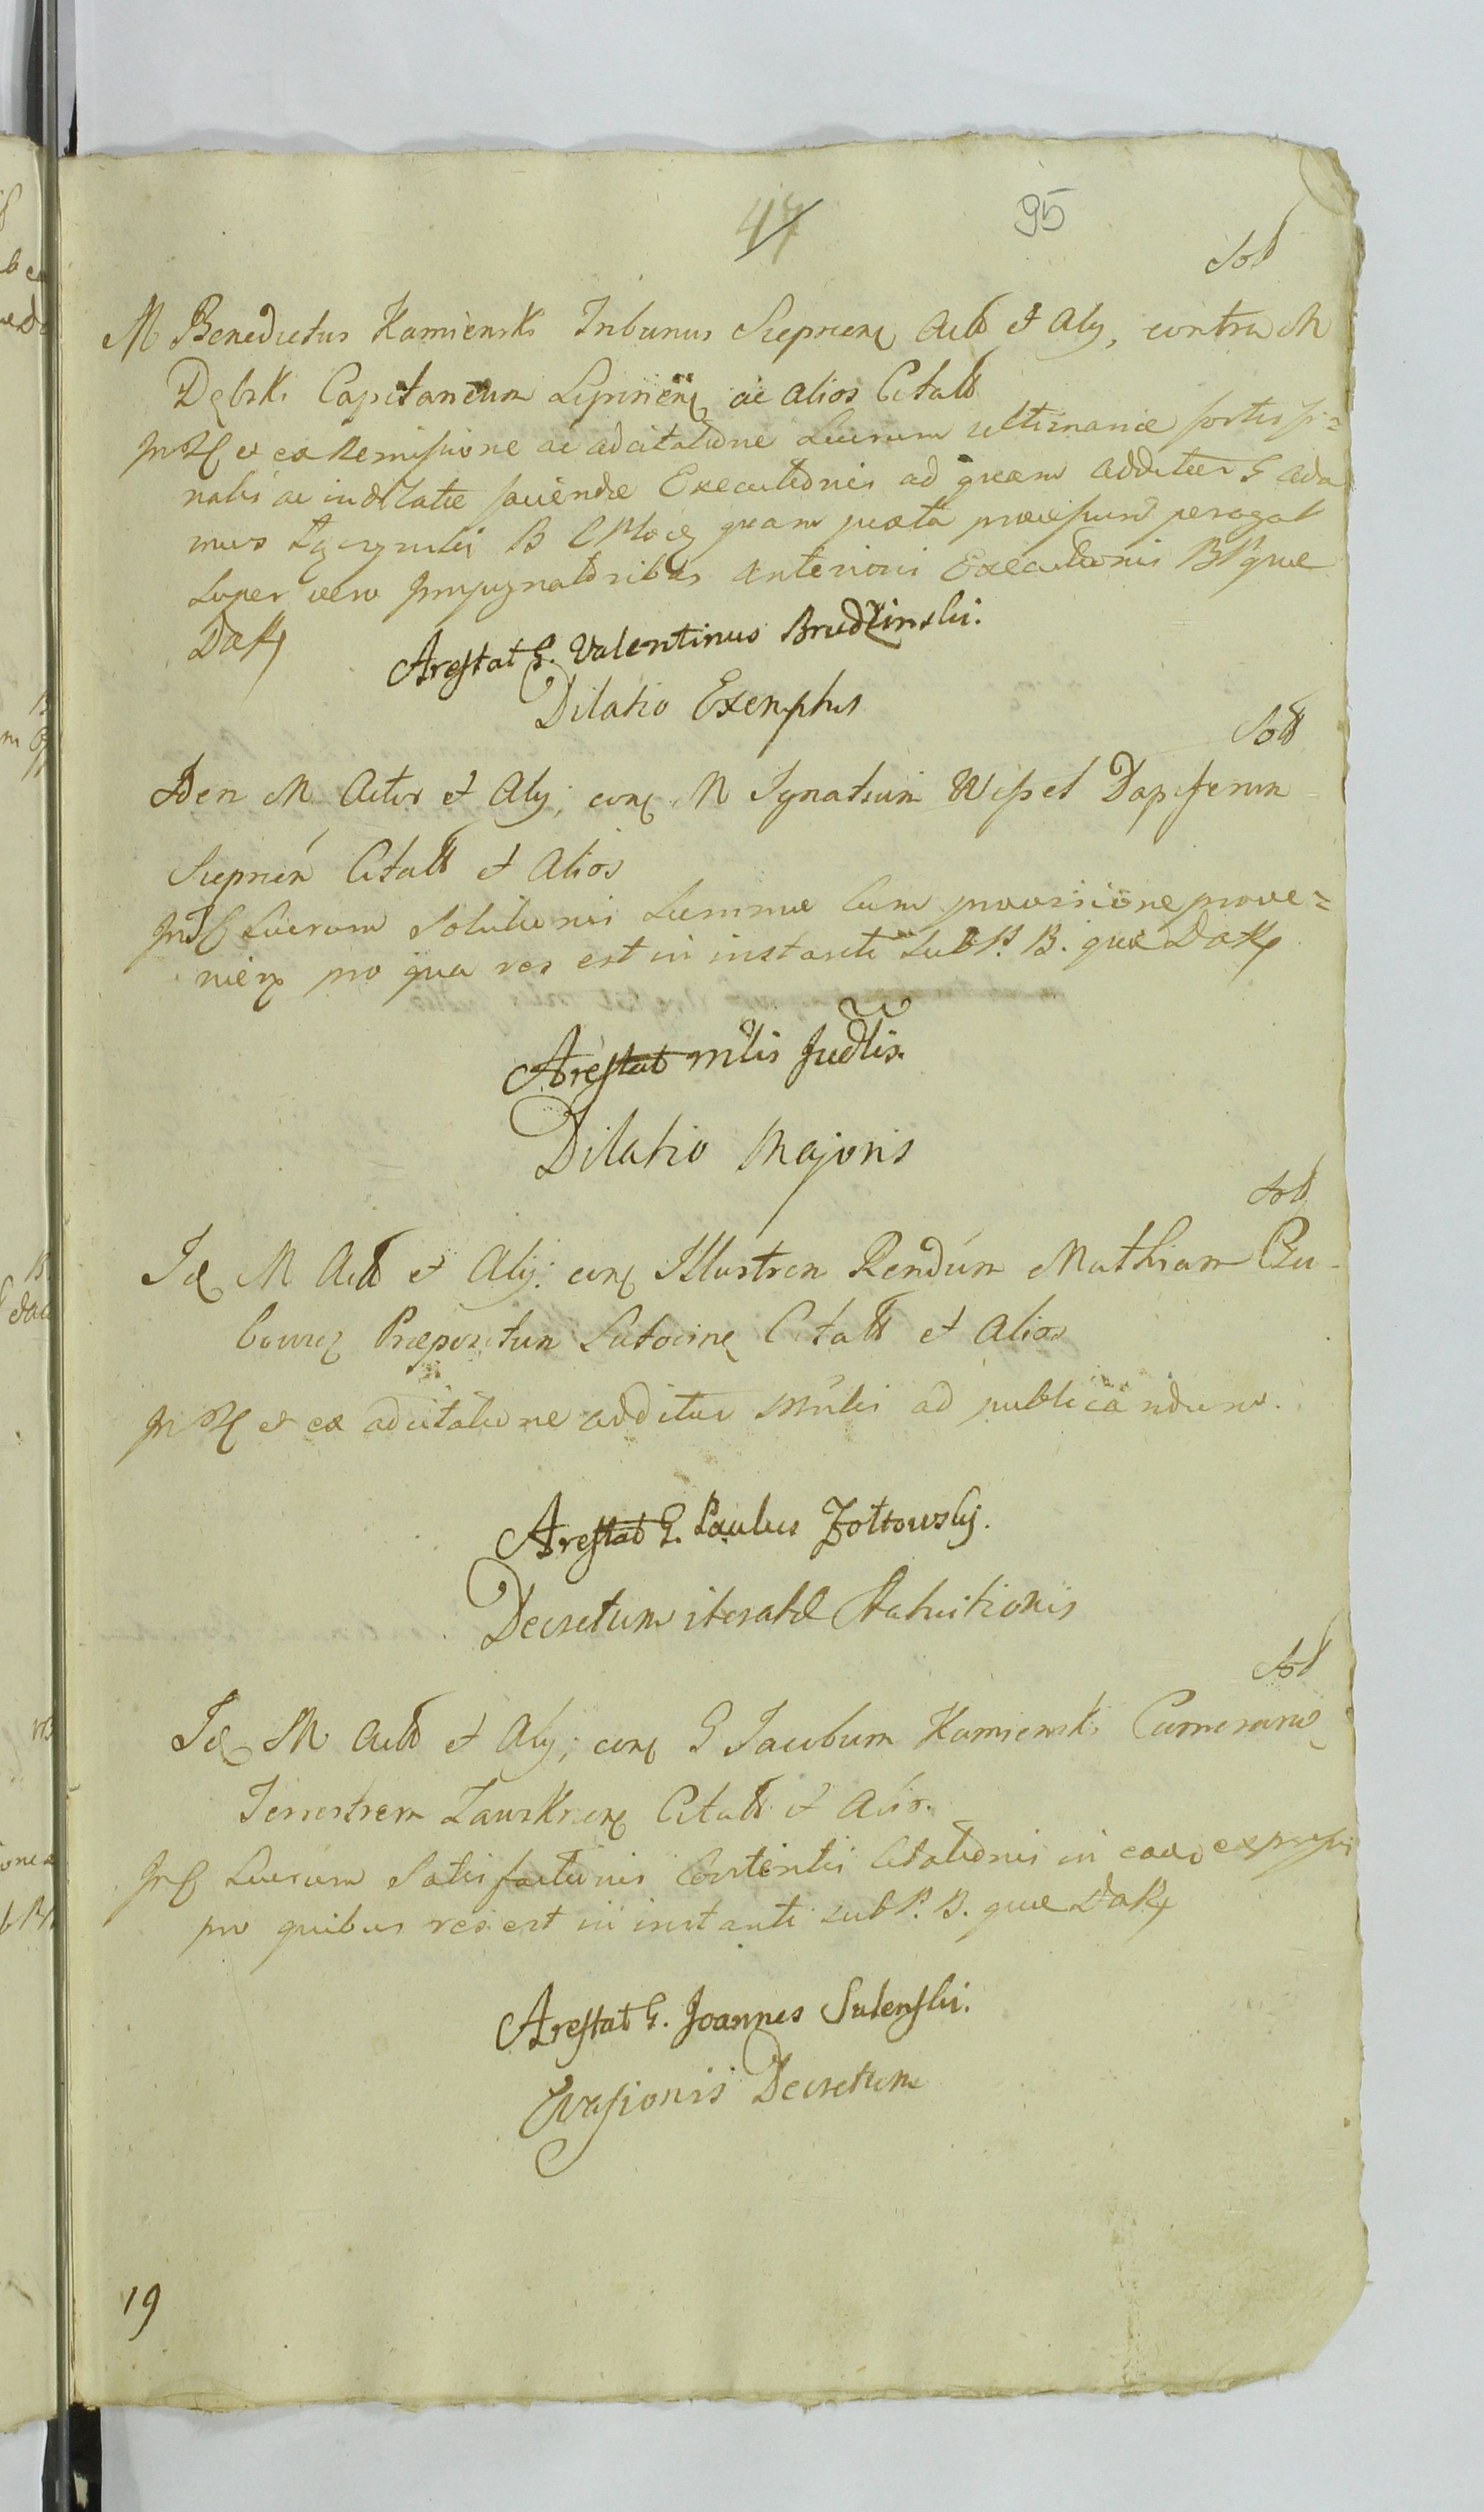 47 95
Sol
M Benedictus Kamienski Tribunus Sieprcen Act et Alij, contra M
Dębski Capitaneum Lipnien ac alios Citatt
et ex Remissione ac adcitatione Lucrum ultimariae fortis fi=
nalis ac indilatae faciendae Executionis ad quam additur G Ada
mus B C Ploc quam juxta praevisum peragat
Super vero Impugnatoribus anterioris Executionis BP quae
Dak
Arestat G. Valentinus Brudziński.
Dilatio Exemptus
Soll
Iden M Actor et Alij; con M Ignatium Wessel Dapiferum
Sieprcen Citatt et Alios
Lucrum Solutionis Summae Cum provisione prove=
nien pro qua res est in instanti sub P. B. quae Dak
Arestat mlis Judlis.
Dilatio Majoris
Sol
Id M Act et Alij: con Illustren Rendum Mathiam Czu-
Praepositum Lutocin Citatt et Alios
et ex adcitatione additur Mnlis ad publicandum.
Arestat G. Paulus Zołtowskj.
Decretum iteratae Statuitionis
Sol
Id M Act et Alij; con G Jacobum Kamienski Camerarium
Terrestrem Zawskrzen Citatt et Alios.
Lucrum Satisfactionis Contentis Citationis in eadem expressis
pro quibus res est in instanti sub P. B. quae Dak
Arestat G. Joannes Sulenski.
Evasionis Decretum
19